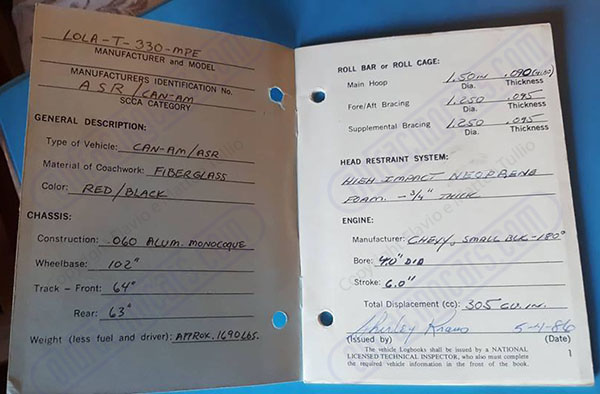 LOLA-T-330-MPE
MANUFACTURER and MODEL
MANUFACTURERS IDENTIFICATION No.
ASR/CAN-AM
SCCA CATEGORY
GENERAL DESCRIPTION:
Type of Vehicle: CAN-AM/ASR
Material of Coachwork: FIBERGLASS
Color: RED/BLACK
CHASSIS:
Construction: .060 ALUM. MONOCOQUE
Wheelbase: 102"
Track – Front: 64"
Rear: 63"
Weight (less fuel and driver): APPROX. 1690 LBS.
ROLL BAR or ROLL CAGE:
Main Hoop 1.50 IN .090
Dia. Thickness
Fore/Aft Bracing 1.250 .095
Dia. Thickness
Supplemental Bracing 1.250 .095
Dia. Thickness
HEAD RESTRAINT SYSTEM:
HIGH IMPACT NEOPRENE
FOAM. - 3/4" THICK
ENGINE:
Manufacturer: CHEVY, SMALL BLK-180°
Bore: 4.0" DIA
Stroke: 6.0"
Total Displacement (cc): 305 CU. IN.
Shirley 5-4-86
(Issued by) (Date)
The vehicle Logbooks shall be issued by a NATIONAL
LICENSED TECHNICAL INSPECTOR, who also must complete
the required vehicle information in the front of the book.
1